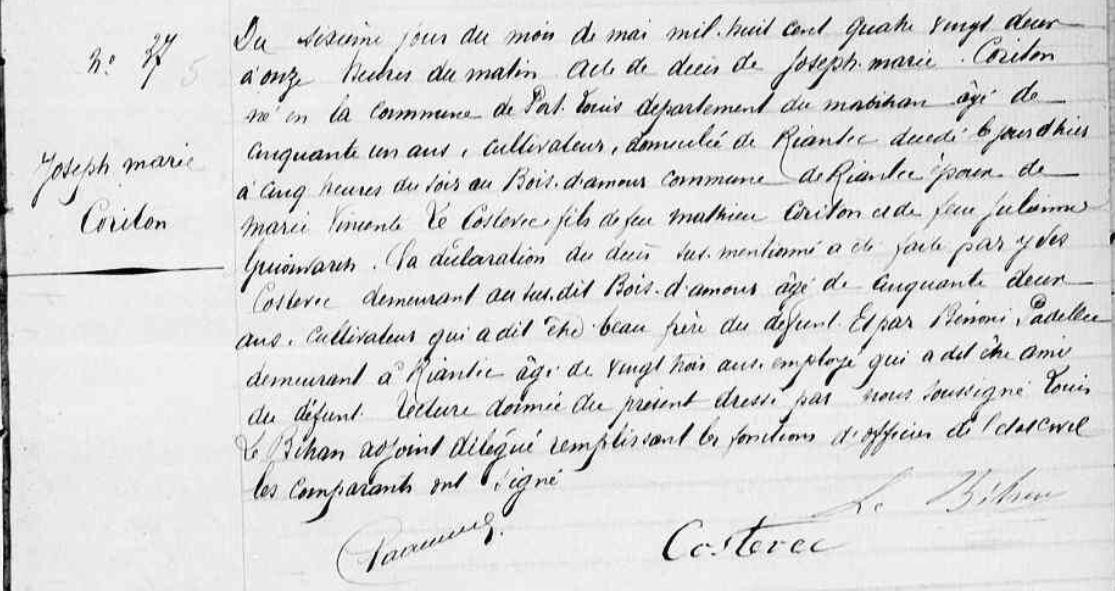 N° 37
5
Joseph marie
Coriton
Du sixième jour du mois de mai mil huit cent quatre vingt deux
à onze heures du matin Acte de decès de Joseph marie Coriton
né en la commune de Port. Louis departement du morbihan âgé de
cinquante un ans, cultivateur, domicilié de Riantec décédé le jour d'hier
à cinq heures du soir au Bois. d'amour commune de Riantec époux de
marie Vincente Le Costevec fils de feu mathieu Coriton et de feue Julienne
Guiomarch. La déclaration du decès sus. mentionné a été faite par yves
Costevec demeurant au sus. dit Bois. d'amour âgé de cinquante deux
ans, cultivateur qui a dit être beau frère du defunt. Et par Bénoni Padellec
demeurant à Riantec âgé de vingt trois ans. employé qui a dit être ami
du défunt. Lecture donnée du présent dressé par nous soussigné Louis
Le Bihan adjoint délégué remplissant les fonctions d'officier de l'etat civil
les comparants ont signé
Le Bihan
Costevec